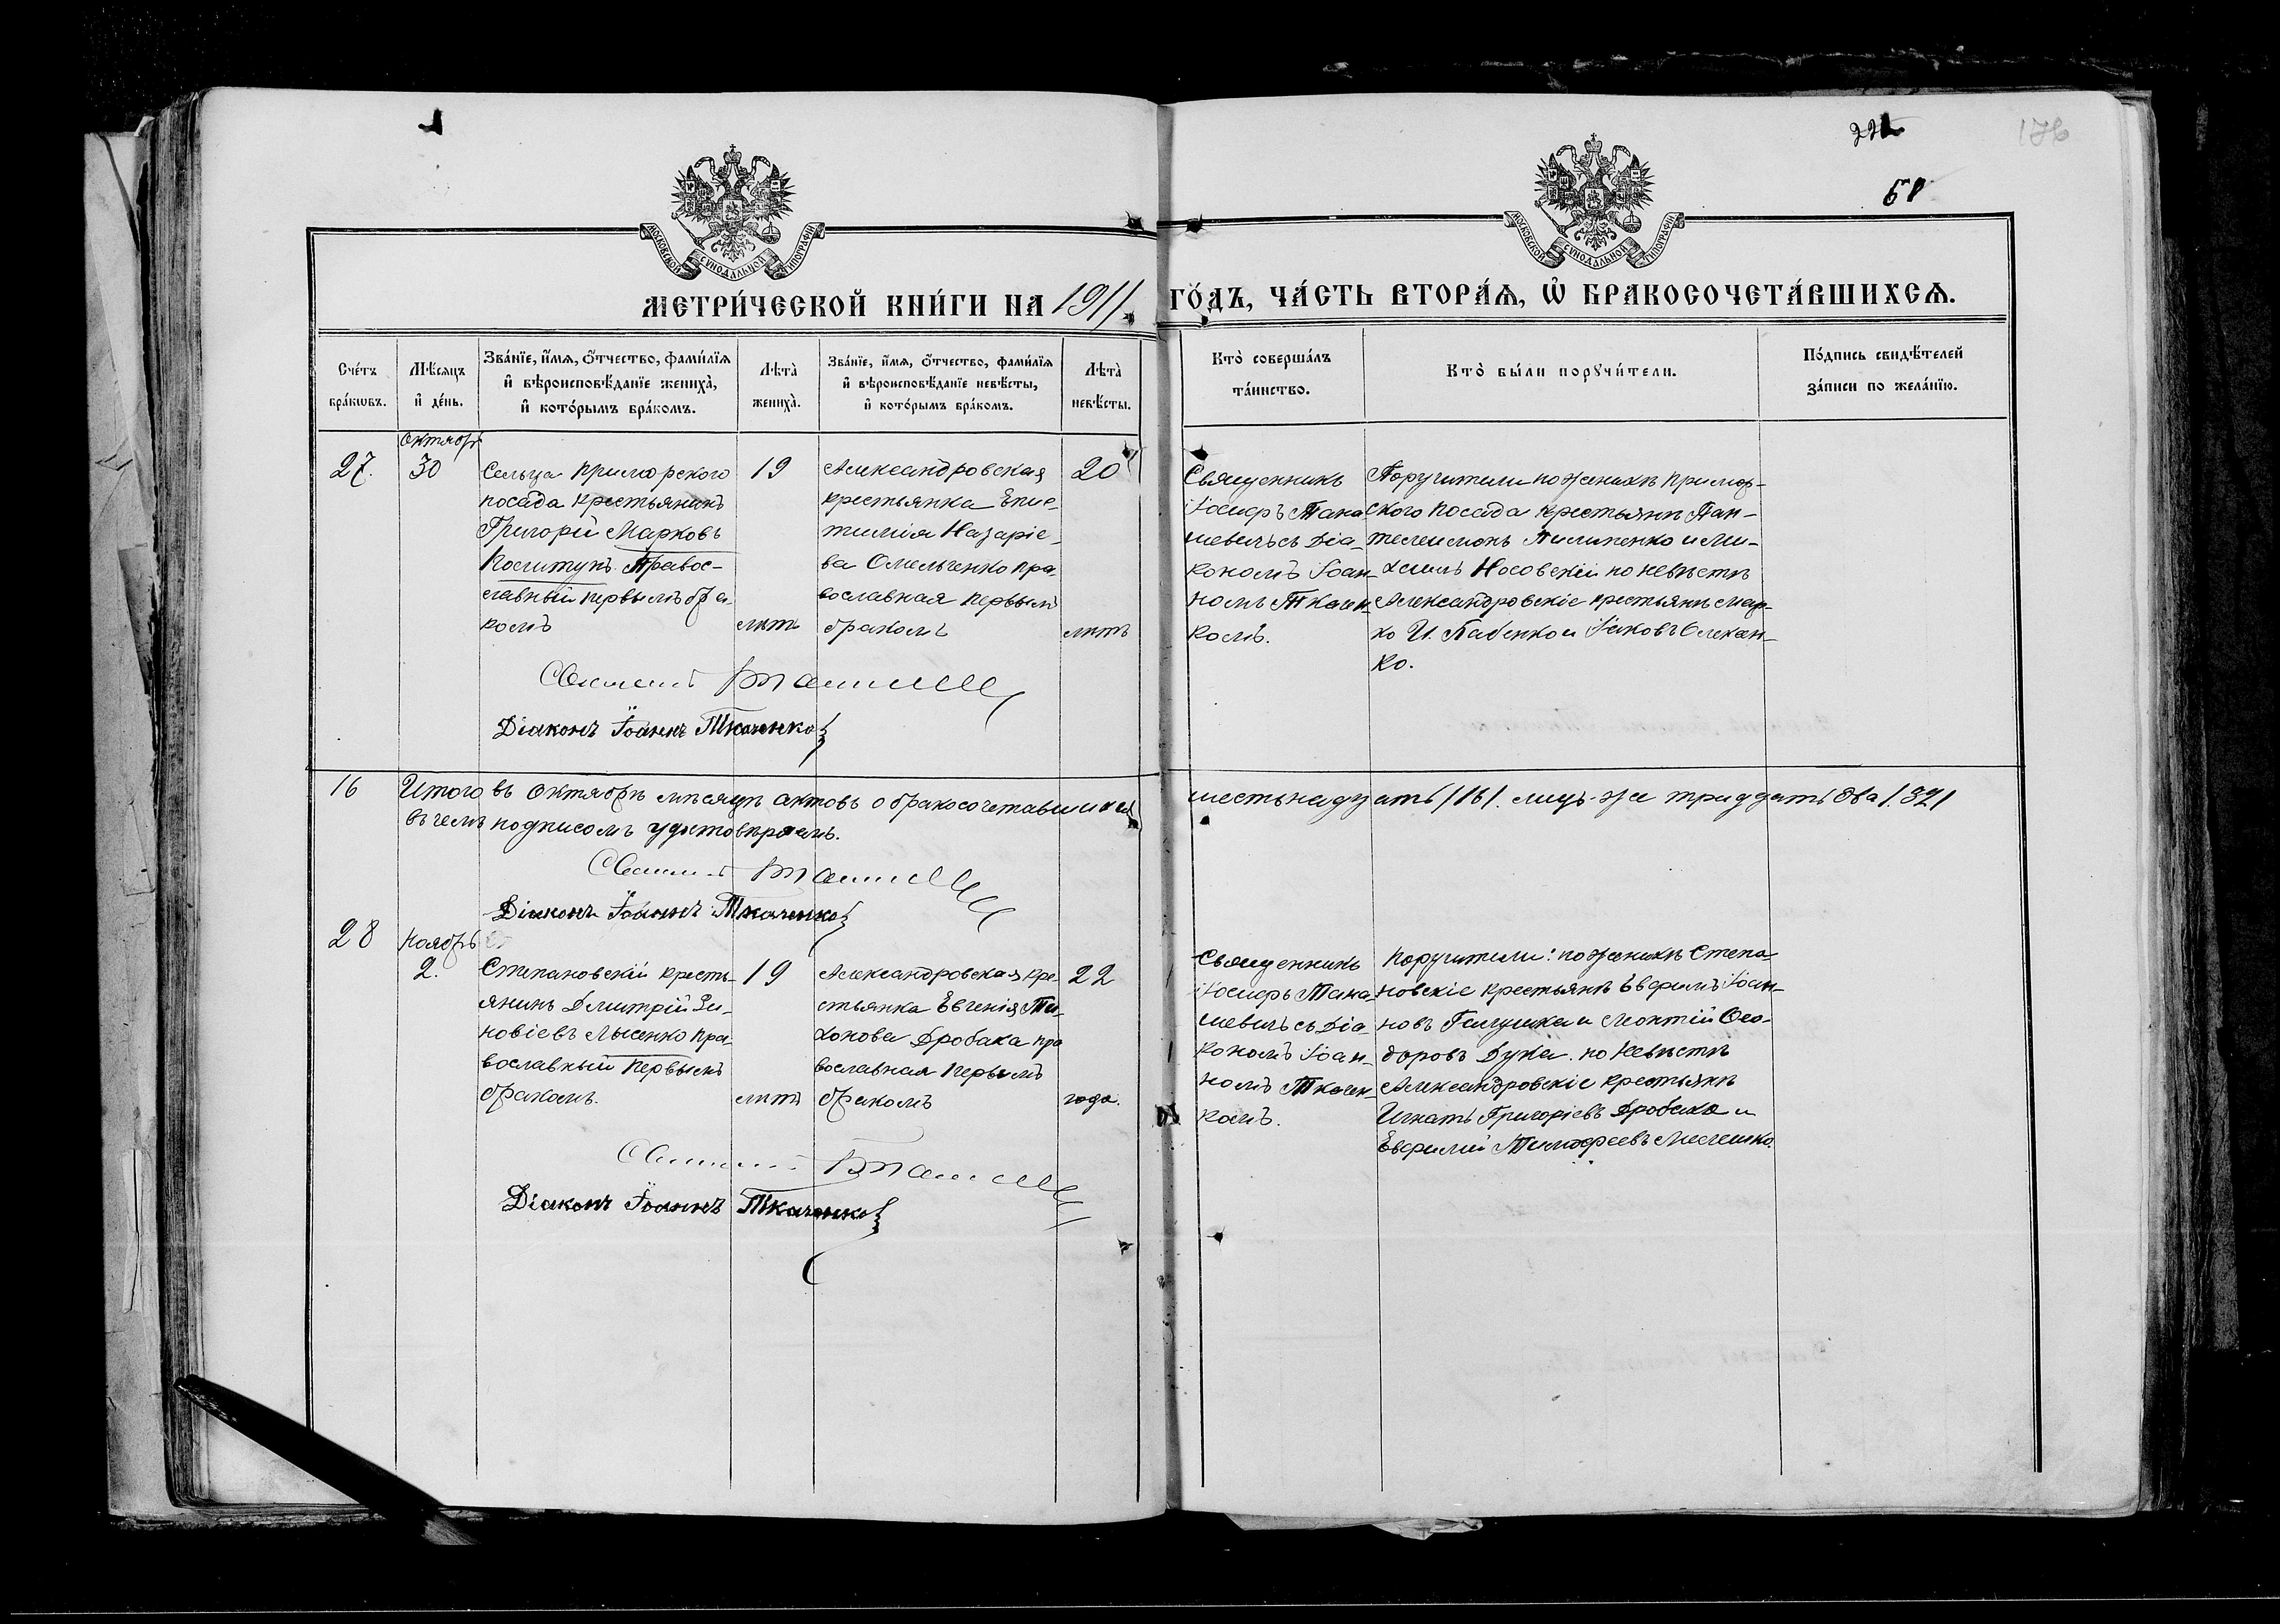 176
68
МОСКОВСКОЙ СУНОДАЛЬНОЙ ТИПОГРАФІИ
МОСКОВСКОЙ СУНОДАЛЬНОЙ ТИПОГРАФІИ
МЕТРИ́ЧЕСКОЙ КНИ́ГИ НА 1911
ГО́ДЪ, ЧА́СТЬ ВТОРА́Ѧ, Ѽ БРАКОСОЧЕТА́ВШИХСѦ.
Сче́тъ бра́кѡвъ.
Мѣ́сяцъ и҆ де́нь.
Зва́нїе, и҆́мѧ, ѻ҆́тчество, фами́лїѧ
и҆ вѣроисповѣ́данїе жениха̀,
и҆ кото́рымъ бра́комъ.
Лѣта̀ жениха̀.
Зва́нїе, и҆́мѧ, ѻ҆́тчество, фами́лїѧ
и҆ вѣроисповѣ́данїе невѣ́сты,
и҆ кото́рымъ бра́комъ.
Лѣта̀ невѣ́сты.
Кто̀ соверша́лъ
та́инство.
Кто̀ бы́ли порꙋчи́тели.
По́дпись свидѣ́телей
за́писи по жела́нїю.
27.
Октябрь
30
Сельца Приморского
посада крестьянинъ
Григорій Марковъ
Правос-
лавный первымъ бра
комъ
19
лѣтъ
Александровская
крестьянка Епис-
тимія Назаріе-
ва Омельченко пра-
вославная первымъ
бракомъ
20
лѣтъ
Священникъ
Іосифъ Тана-
шевичъ съ Діа-
кономъ Іоан-
номъ Ткачен-
комъ.
Поручители по женихѣ Примор-
ского посада крестьяне Пан-
телеимонъ Пилипенко и Ми-
хаилъ Носовскій по невѣстѣ
Александровскіе крестьяне Мар-
ко И. Бабенко и Іаковъ
ко.
Діаконъ Іоаннъ Ткаченко
16
Итого въ Октябрѣ мѣсяцѣ актовъ о бракосочетавшихся
шестьнадцать /16/. лицъ-же тридцать два /32/
въ чемъ подписомъ удостовѣряемъ.
Діаконъ Іоаннъ Ткаченко
28
Ноябрь
2.
Степановскій кресть-
янинъ Дмитрій Зи-
новіевъ Лысенко пра-
вославный первымъ
бракомъ.
19
лѣтъ
Александровская кре-
стьянка Евгенія Ти-
хонова Дробаха пра
вославная первымъ
бракомъ
22
года.
Священникъ
Іосифъ Тана-
шевичъ съ Діа-
кономъ Іоан-
номъ Ткачен-
комъ.
Поручители: по женихѣ Степа-
новскіе крестьяне Евфимъ Іоан-
новъ Галушка и Леонтій Ѳео-
доровъ Дука. по невѣстѣ
Александровскіе крестьяне
Игнатъ Григоріевъ Дробаха и
Евфимій Тимофеевъ
Діаконъ Іоаннъ Ткаченко